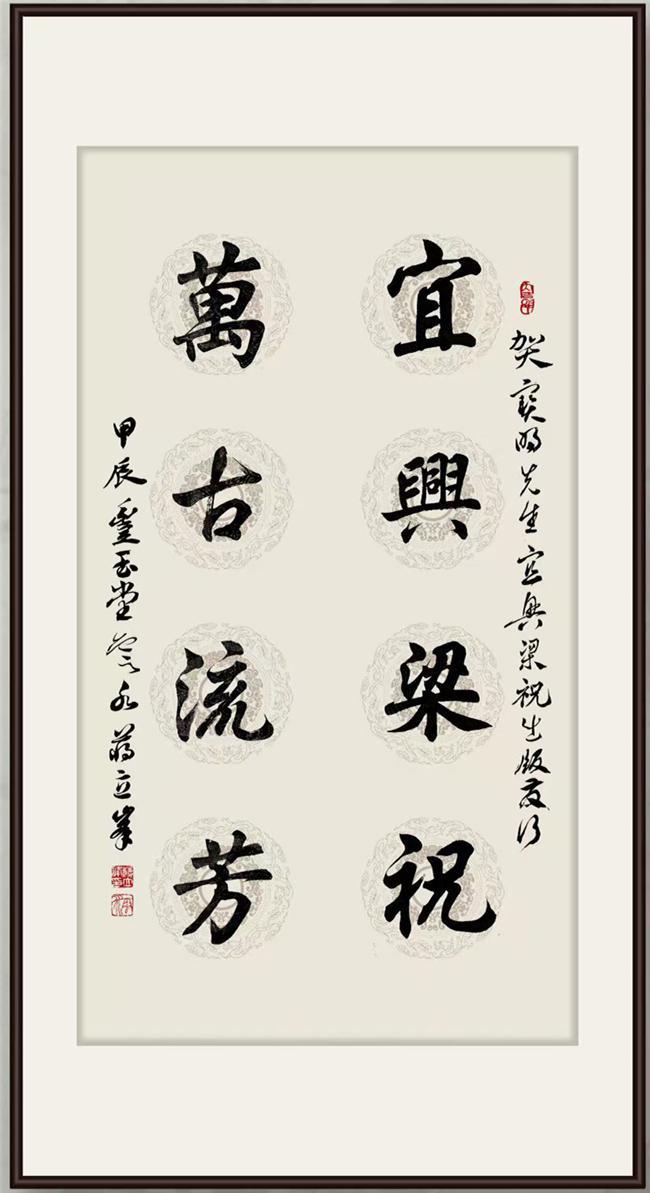 贺宝明先生宜兴梁祝出版发行
宜興梁祝
萬古流芳
甲辰玉堂蔣立峯